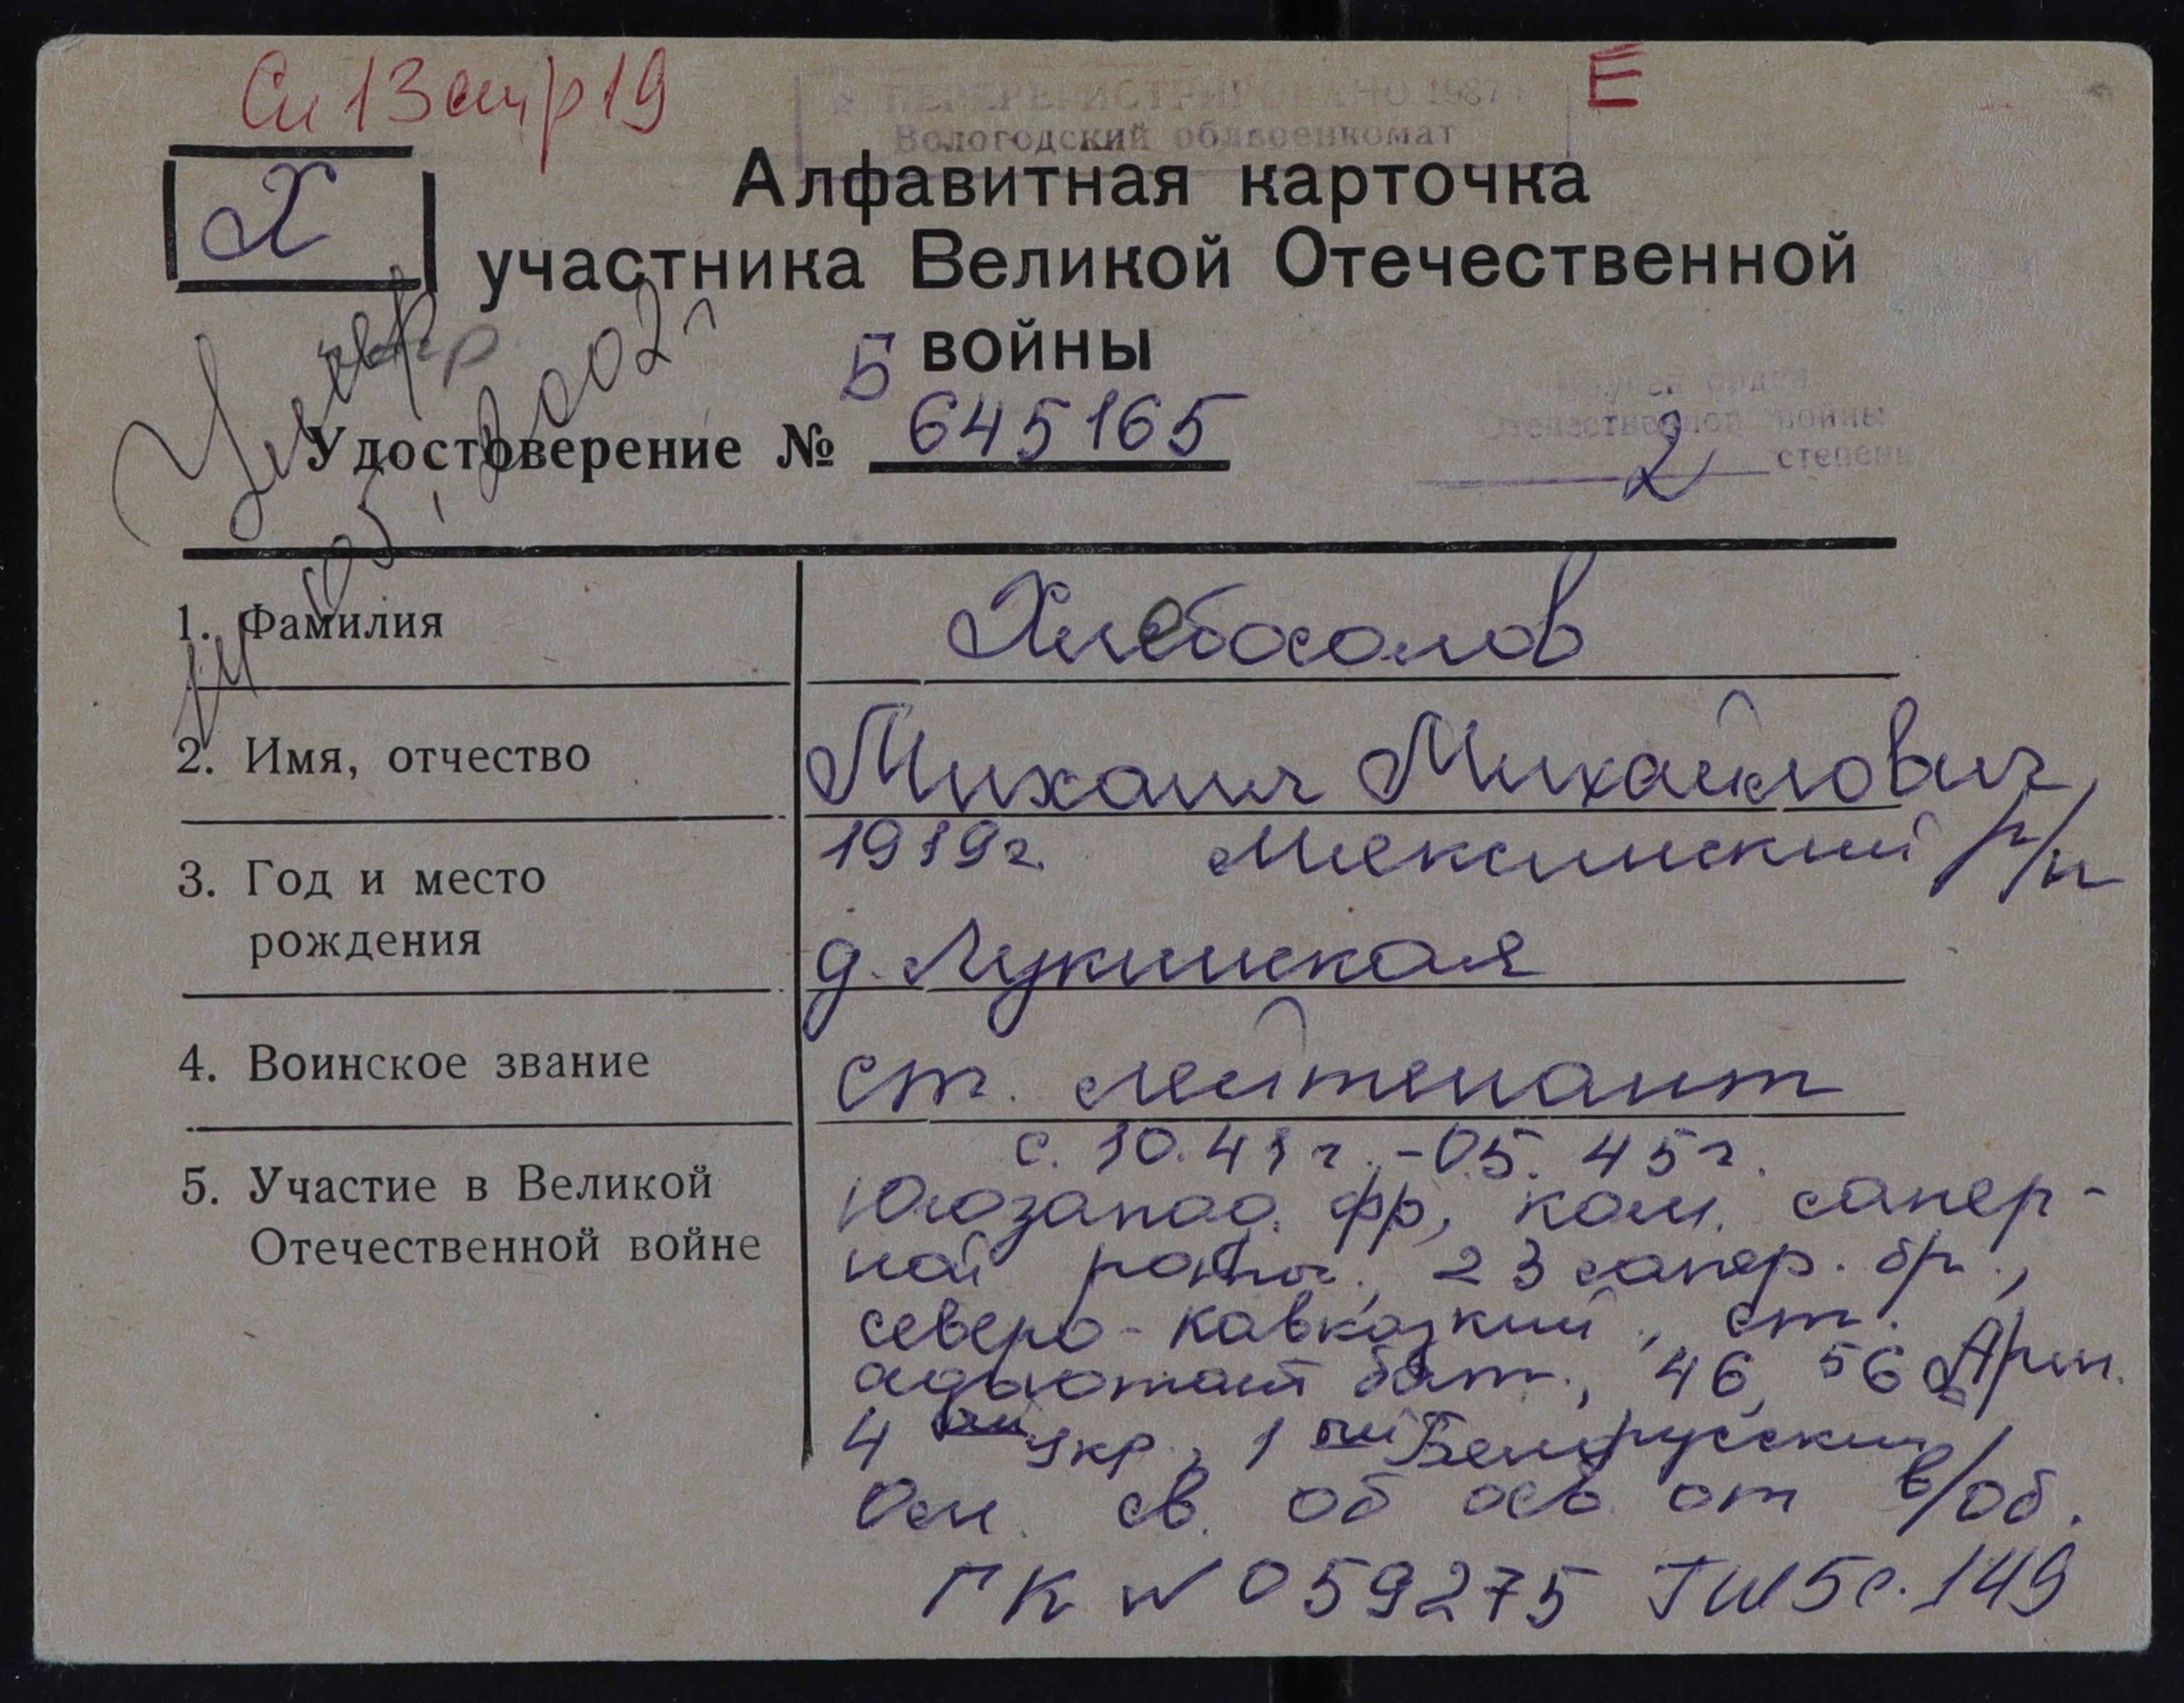 Сп 13 стр 19
Е
ПЕРЕРЕГИСТРИРОВАНО 1987 г
Вологодский облвоенкомат
Х
Алфавитная карточка
участника Великой Отечественной
войны
Умер
05, 2002 г
Б
Удостоверение № 645165
Вручен орден
Отечественной войны
2 степени
1. Фамилия
Хлебосолов
2. Имя, отчество
Михаил Михайлович
3. Год и место
рождения
1919г. Мяксинский р/н
д. Лукинская
4. Воинское звание
ст. лейтенант
5. Участие в Великой
Отечественной войне
с. 10.41 г. - 05. 45 г.
Югозапад. фр, ком. сапер-
ной роты, 23 сапер. бр.,
северо-кавказкий, ст.
адъютант бат., 46, 56 Арм.
4 ый Укр., 1 ый Белорусский
Осн. св. об осв. от в/об.
ГК № 059275 Тш5 с. 149